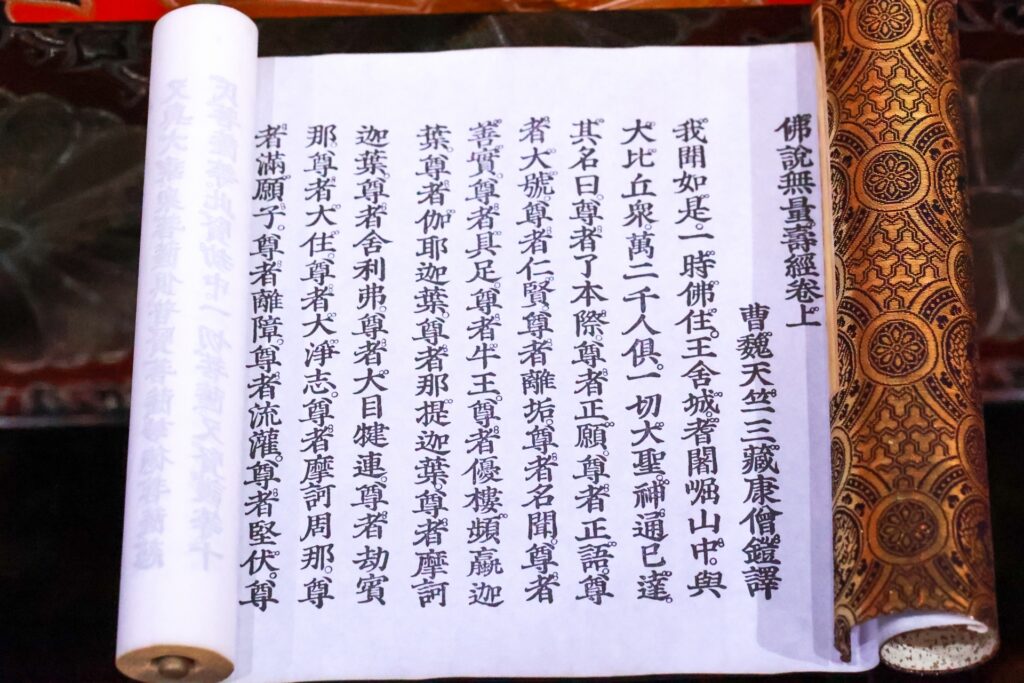 佛說無量壽經卷上
曹魏天竺三藏康僧鎧譯
我聞如是。一時佛住。王舍城。耆闍崛山中。與
大比丘衆。萬二千人俱。一切大聖。神通已達。
其名曰。尊者了本際。尊者正願。尊者正語。尊
者大號。尊者仁賢。尊者離垢。尊者名聞。尊者
善實。尊者具足。尊者牛王。尊者優樓頻蠃迦
葉。尊者伽耶迦葉。尊者那提迦葉。尊者摩訶
迦葉。尊者舍利弗。尊者大目犍連。尊者劫賓
那。尊者大住。尊者大淨志。尊者摩訶周那。尊
者滿願子。尊者離障。尊者流灌。尊者堅伏。尊